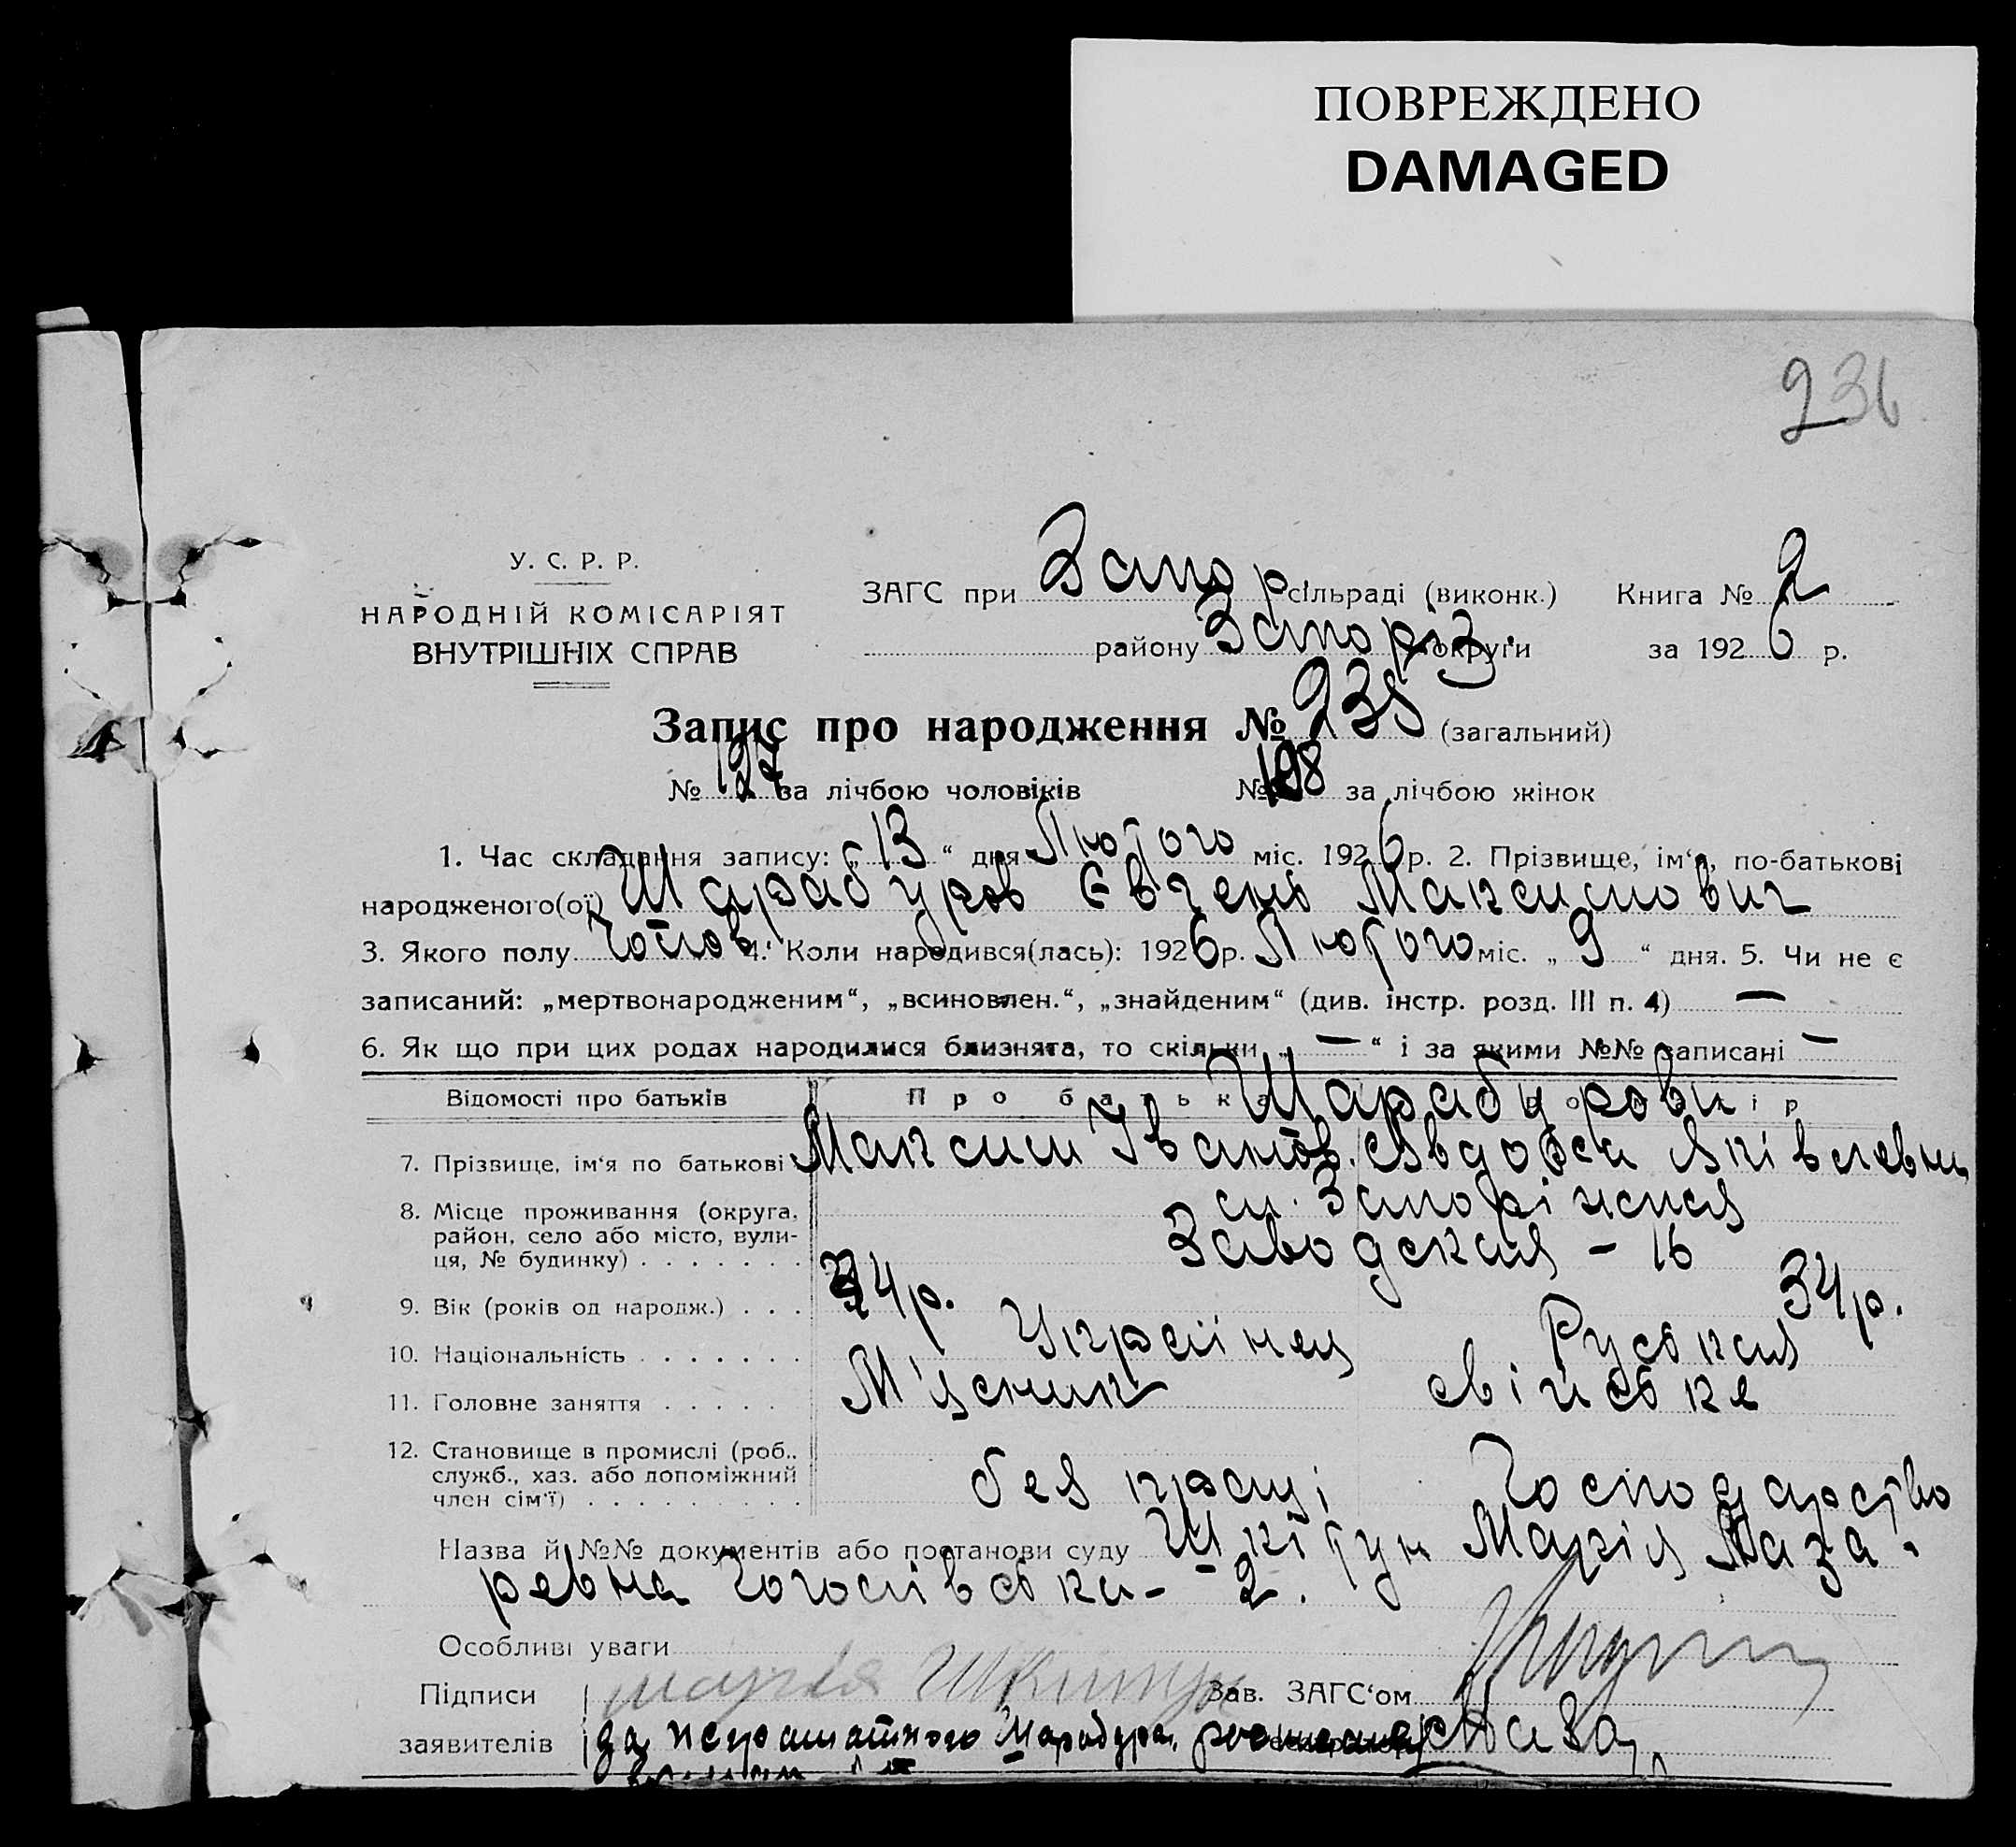 ПОВРЕЖДЕНО
DAMAGED
236
У. С. Р. Р.
НАРОДНІЙ КОМІСАРІЯТ
ВНУТРІШНІХ СПРАВ
ЗАГС при Запор сільраді (виконк.) Книга № 2
району Запоріз. округи за 1926 р.
Запис про народження № 235 (загальний)
№ 127 за лічбою чоловіків № 108 за лічбою жінок
1. Час складання запису: „ 13 “ дня Лютого міс. 1926 р. 2. Прізвище, ім‘я, по-батькові
народженого(ої) Шарабуров Євгень Максимович
3. Якого полу Чолов. 4. Коли народився(лась): 1926 р. Лютого міс. „ 9 “ дня. 5. Чи не є
записаний: „мертвонародженим“, „всиновлен.“, „знайденим“ (див. інстр. розд. III п. 4) —
6. Як що при цих родах народилися близнята, то скільки „ — “ і за якими №№ записані —
Відомості про батьків Про батька Шарабурови
7. Прізвище, ім‘я по батькові Максим Іванов. Явдоха Яківлевна
8. Місце проживання (округа, м. Запоріжжя
район, село або місто, вули- Заводская - 16
ця, № будинку) . . . . . . .
9. Вік (років од народж.) . . . 34р. 34р.
10. Національність . . . . . . . Українец Руськая
11. Головне заняття . . . . . М'ясник свійське
12. Становище в промислі (роб..
служб., хаз. або допоміжний без праці Господарство
член сім‘ї) . . . . . . . . . .
Назва й №№ документів або постанови суду Шкітун Марія Лаза-
ревна - 2.
Особливі уваги
Підписи Мария Шкитун Зав. ЗАГС‘ом
заявителів за неграматного Шарабура,